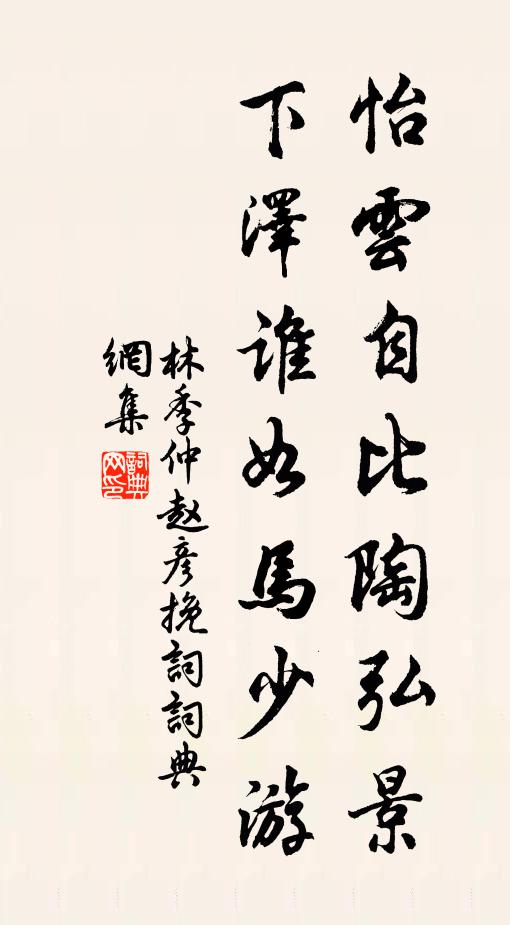 怡雲自比陶弘景
下澤誰如馬少游
林季仲赵彦挽詞詞典
網集
詞典
网印